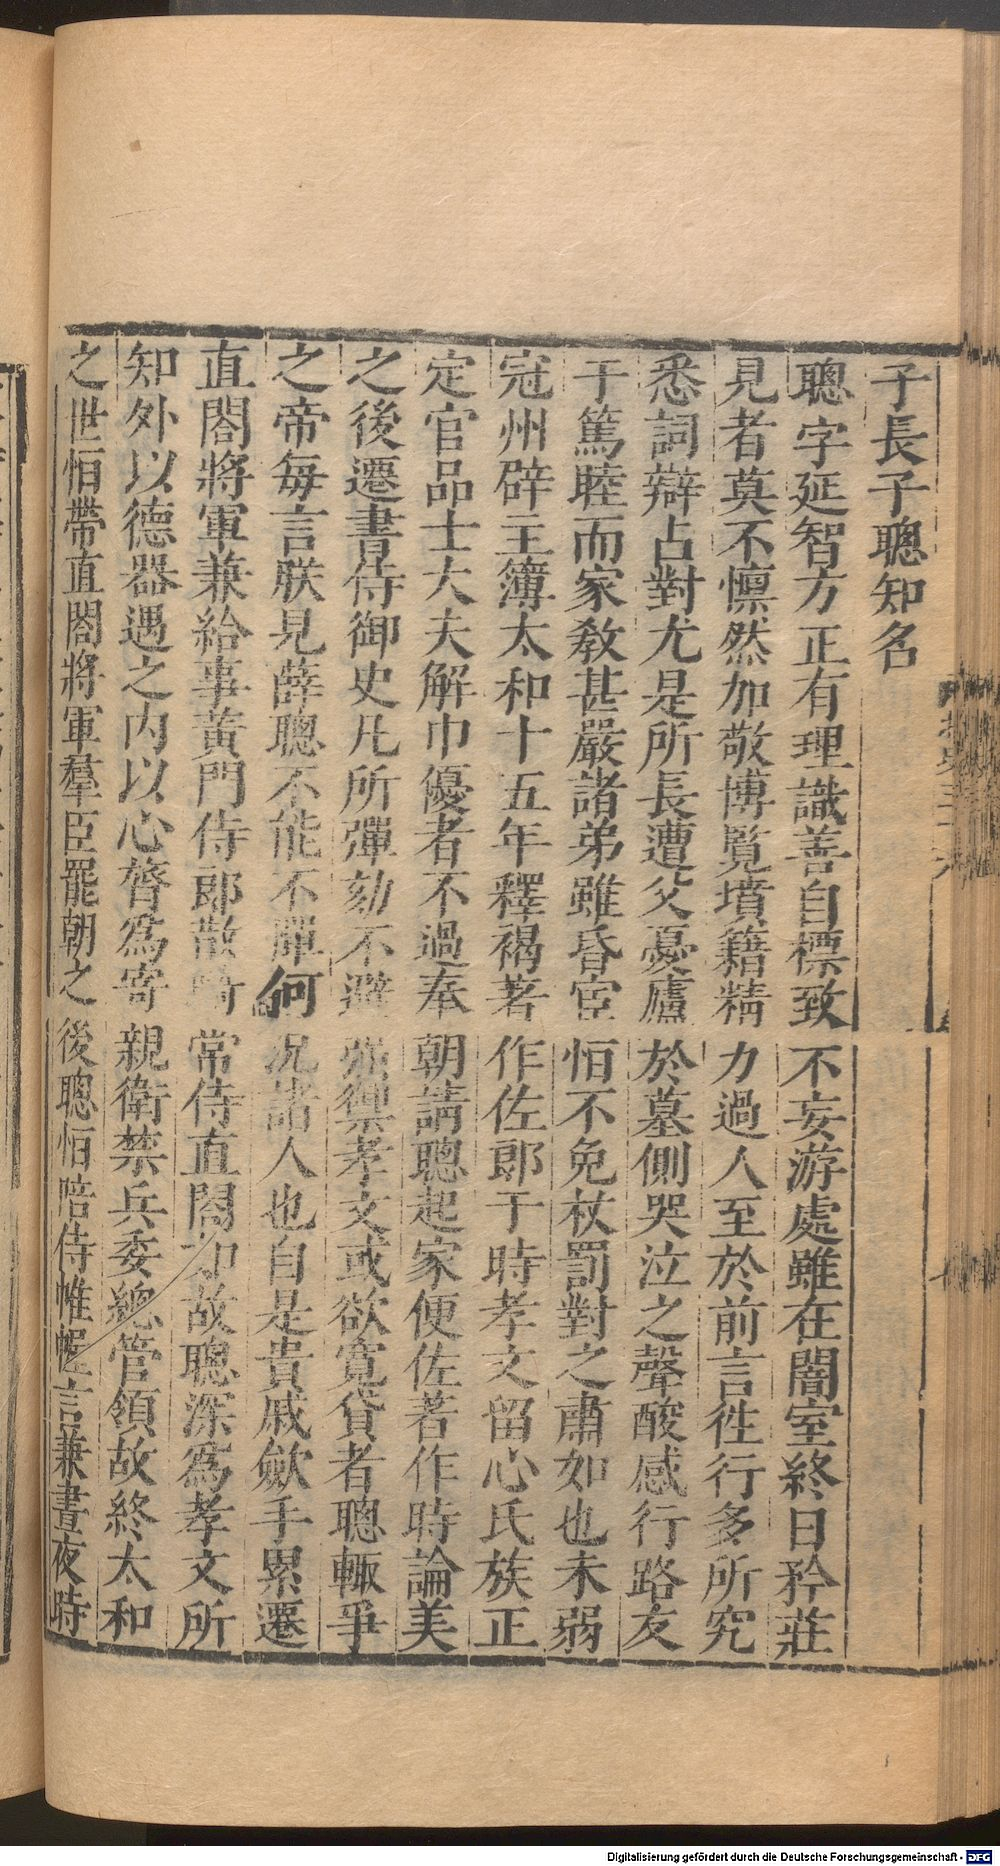 子長子聰知名
聰字延智方正有理識善自標致不妄游處雖在闇室終日矜莊
見者莫不懔然加敬博覽墳籍精力過人至於前言徃行多所究
悉詞辯占對尤是所長遭父憂廬於墓側哭泣之聲酸感行路友
于篤睦而家敎甚嚴諸弟雖昏宦恒不免杖罰對之肅如也未弱
冠州辟主簿太和十五年釋褐著作佐郎于時孝文留心氏族正
定官品士大夫解巾優者不過奉朝請聰起家便佐著作時論美
之後遷書侍御史凡所彈劾不避強禦孝文或欲寛貸者聰輙爭
之帝每言朕見薛聰不能不憚何况諸人也自是貴戚斂手累遷
直閤將軍兼給事黃門侍郎散騎常侍直閤如故聰深爲孝文所
知外以德器遇之内以心膂爲寄親衛禁兵委總管領故終太和
之世恒帶直閤將軍羣臣罷朝之後聰恒陪侍帷幄言兼晝夜時
Digitalisierung gefördert durch die Deutsche Forschungsgemeinschaft - DFG